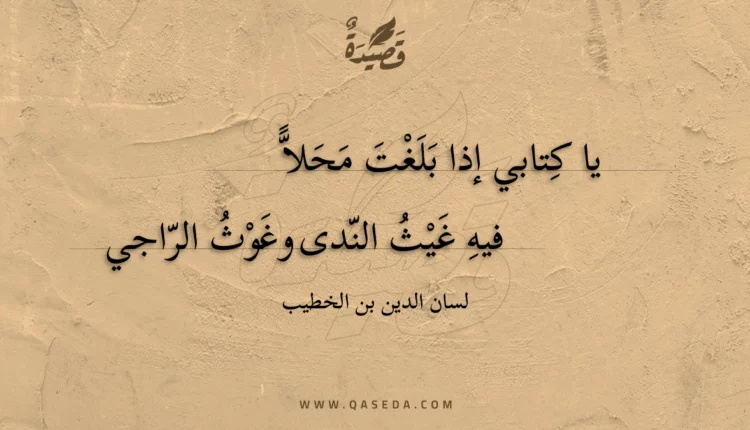 قَصِيْدَةٌ
يا كِتابي إذا بَلَغْتَ مَحَلاًّ
فيهِ غَيْثُ النّدى وغَوْثُ الرّاجي
لسان الدين بن الخطيب
WWW.QASEDA.COM